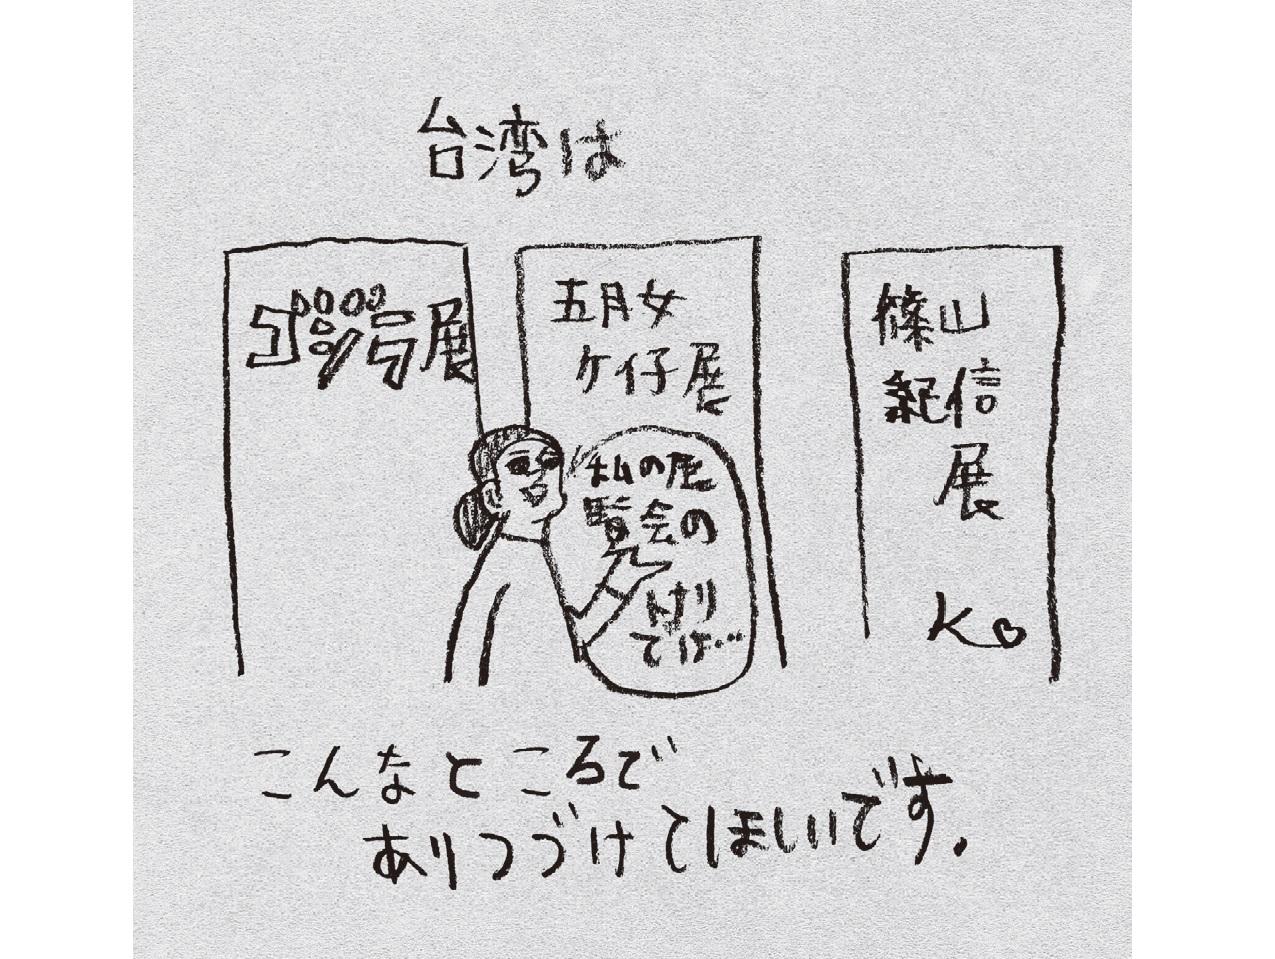 台湾は
ゴジラ展
五月女
ケイ子展
篠山
紀信
展
私の展
覧会の
トナリ
でば…
K♡
こんなところで
ありつづけてほしいです。